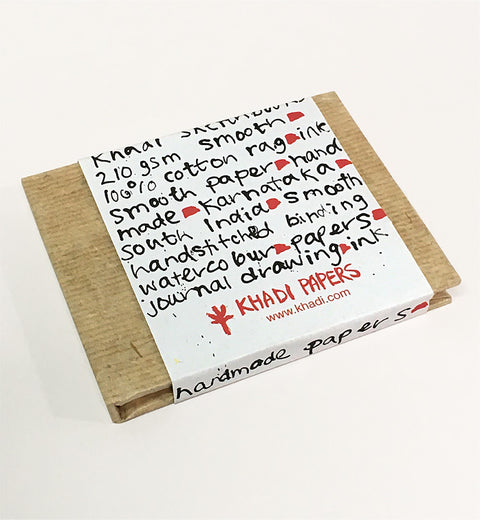 Khadi sketchbooks
210gsm smooth
100% cotton rag ink
smooth paper hand
made Karnataka
South India smooth
handstitched binding
watercolour papers
journal drawing ink
KHADI PAPERS
www.khadi.com
handmade papers